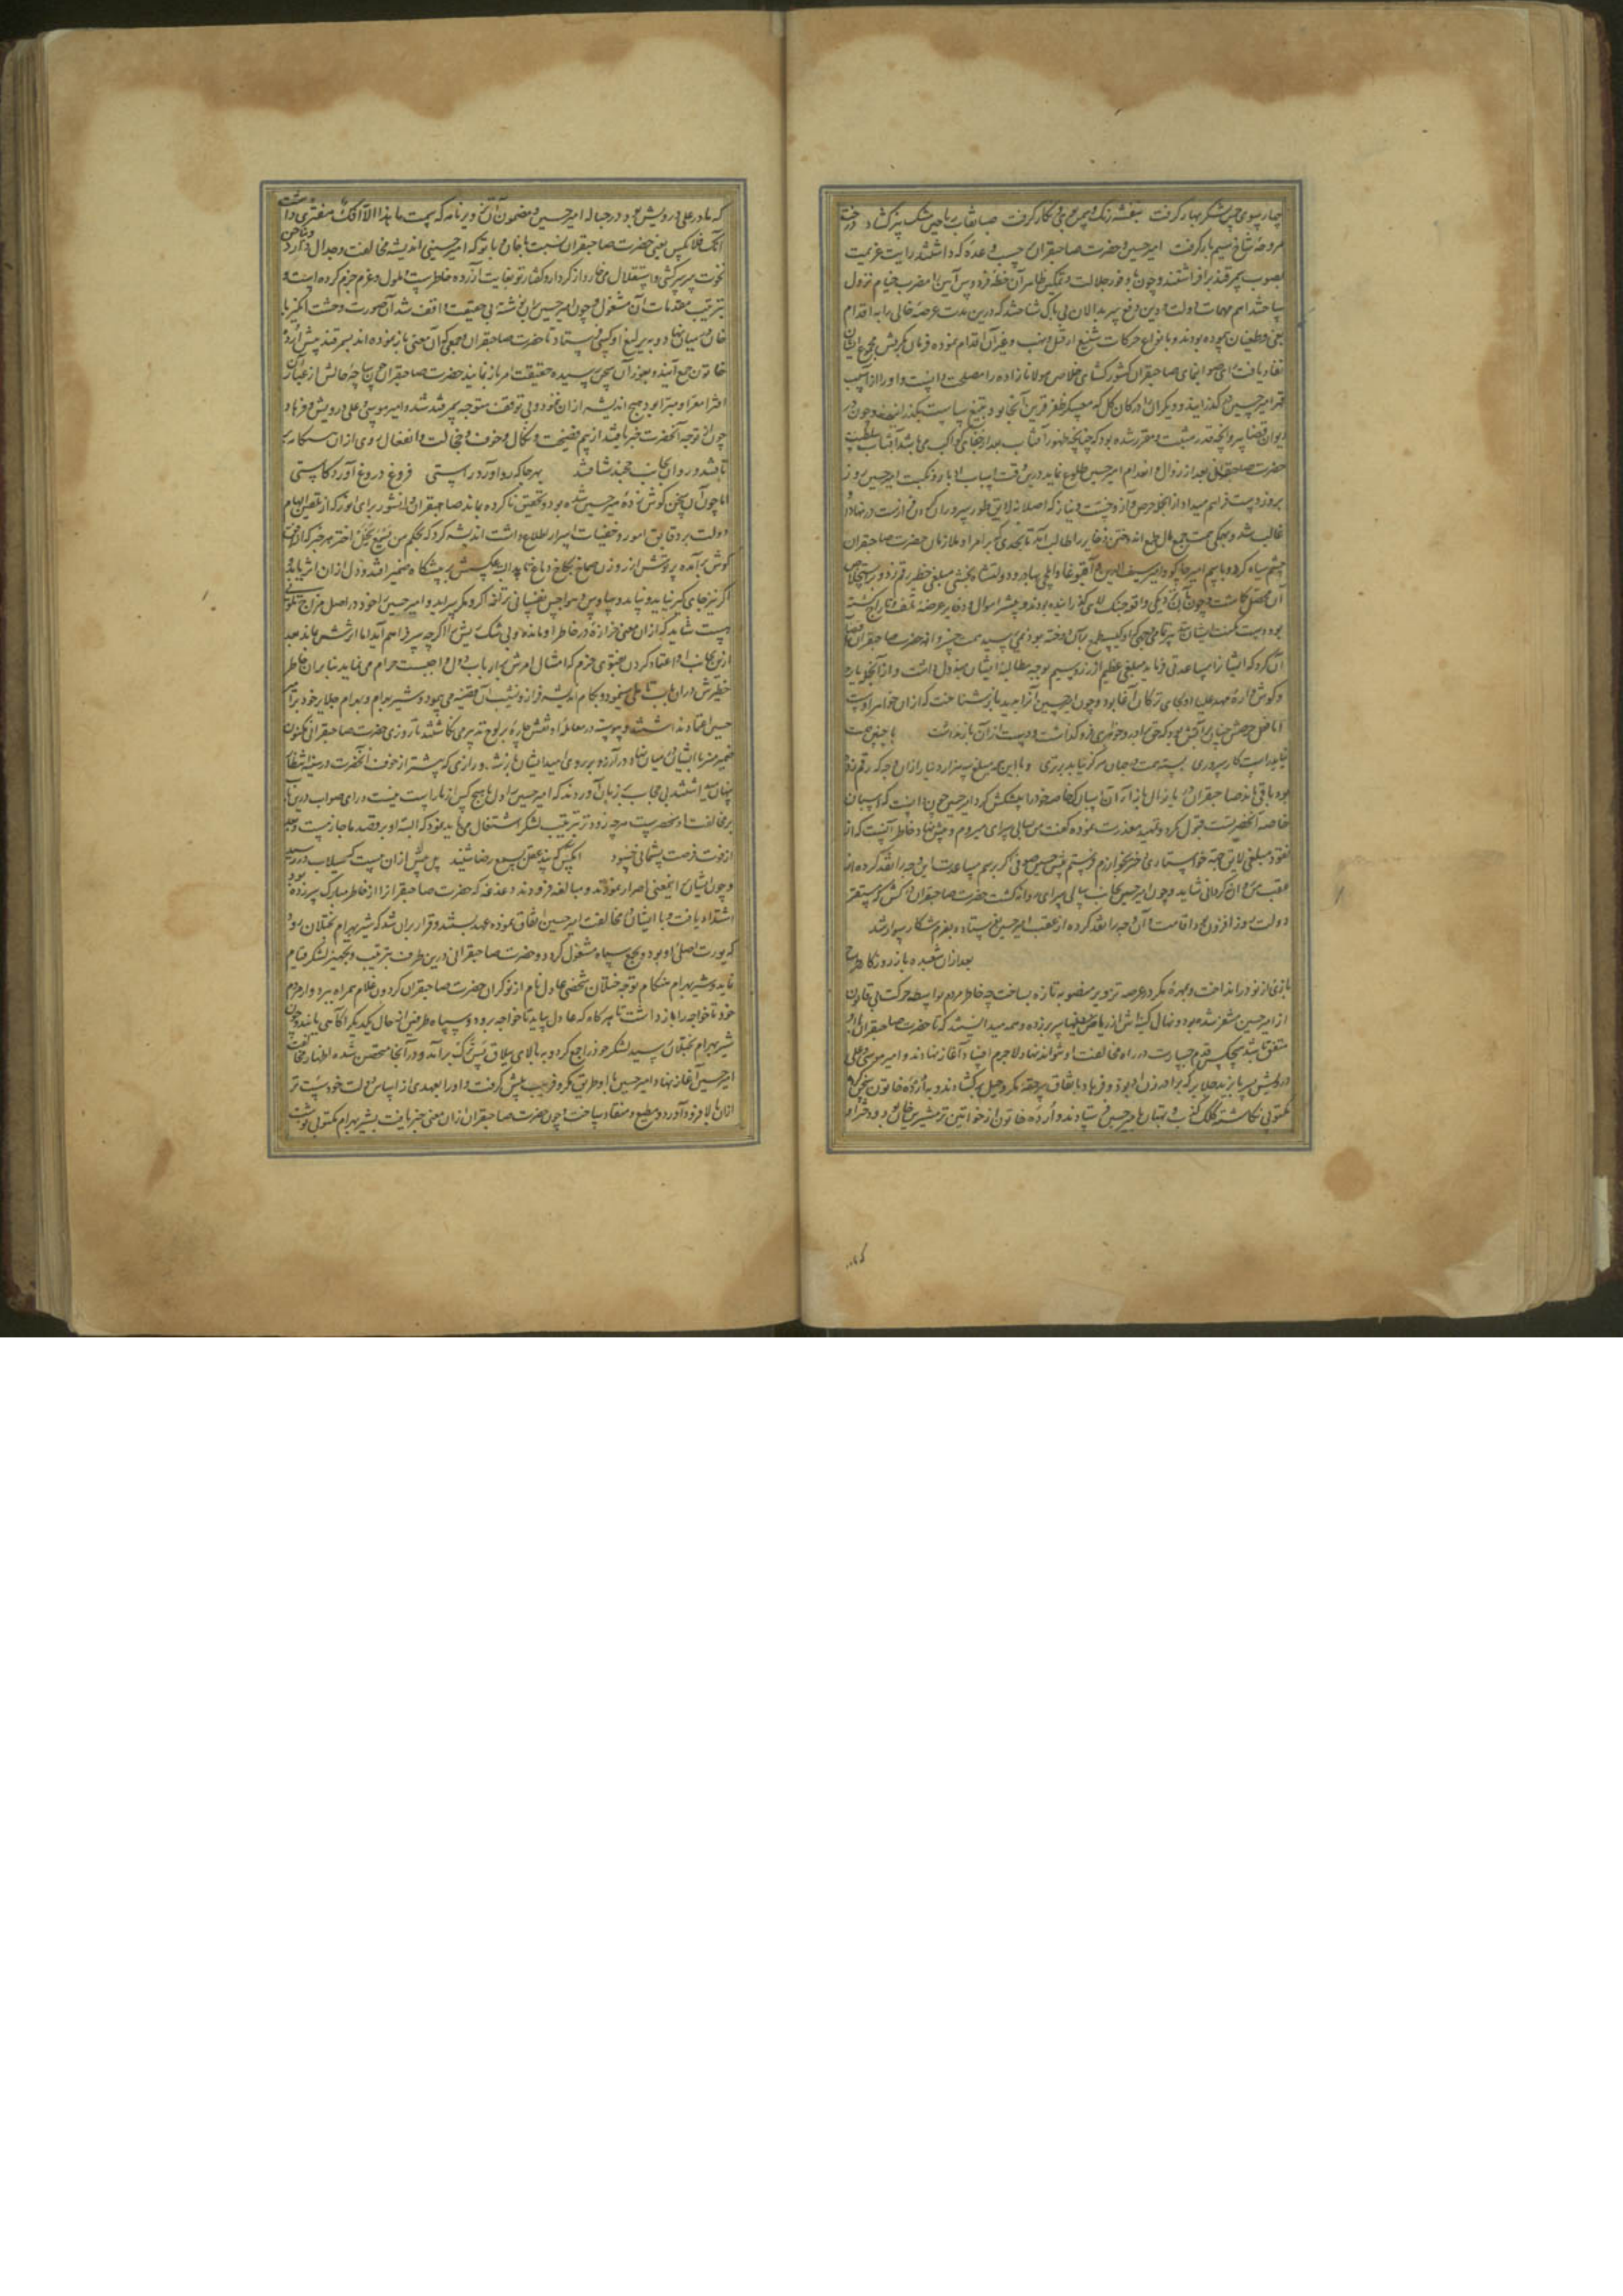 چار سوی چمن لشکر بهار گرفت بنفشه رنگ و سمن بوی نگار گرفت صبا نقاب ریاحین مشک بیز گشاد درخت
مروحهٔ شاخ نسیم بار گرفت امیر حسین و حضرت صاحبقران حسب وعدهٔ که داشتند رایت عزیمت
بصوب سمرقند برافراشتند و چون وفور جلالت و تمکین ظاهر آن خطهٔ فردوس آیین را مضرب خیام نزول
ساختند اهم مهمات دولت و دین دفع سربدالان بی باک شناختند که درین مدت عرصه خالی را به اقدام
بغی و طغیان پیموده بودند و بانواع حرکات شنیع از قتل و نهب و غیر آن اقدام نموده فرمان
نفاذ یافت رای صاحبقران کشورگشای خلاصی مولانا زاده را مصلحت دانست و او را از آسیب
قهر امیر حسین گذرانید و دیگران را در کان گل که معسکر ظفر قرین آنجا بود بتیغ سیاست بگذرانیدند و چون در
دیوان قضا پروانچه قدر مثبت و مقرر شده بود که چنانچه ظهور آفتاب بعد از کواکب می باشد آفتاب سلطنت
حضرت صاحبقرانی بعد از زوال و انهدام امیر حسین طلوع نماید درین وقت اسباب ادبار و نکبت امیر حسین روز
بروز دست فراهم میداد از آنجمله حرص و آز و خست و نیاز که اصلا نه لایق طور سروران است در نهاد او
غالب شد و بهگی همت بجمع مال و اندوختن ذخایر را طالب آمد تا بحدی که بر امرا و ملازمان حضرت صاحبقران
چشم سیاه کرد و باسم امیر جاکو و امیر سیف الدین و آقبوغا و ایلچی بهادر و دولتشاه بخشی مبلغی خطیر رقم زد و بر استخلاص
آن محصل گماشت و چون در آن نزدیکی واقعه جنگ لای گذرانیده بودند و بیشتر اموال و ذخایر عرضهٔ تلف و تاراج گشته
بود دست مکنت ایشان بتمامی وجهی که او کیسه طمع بر آن دوخته بود نمی رسید همت خسروانه حضرت صاحبقران
آن کرد که ایشانرا مساعدتی فرماید مبلغی عظیم از زر و سیم بوجه مطالبه ایشان مبذول داشت و از آنجمله یاره
و گوش وارهٔ مهد علیا اولجای ترکان آغا بود و چون امیر حسین آنرا بدید بازشناخت که از آن خواهر اوست
اما حرصش چنان برآتش بود که حق برادر و خواهری فرو گذاشت و دست از آن باز نداشت با چنین همت
نیاید راست کار سروری بسته همت در جهان هرگز نیابد برتری و با این همه مبلغ سه هزار دینار از آن وجه که رقم زده
بود باقی ماند صاحبقران دریا نوال بازاء آن اسبان خاصه خود را پیشکش کرد امیر حسین چون دانست که اسبان
خاصه آنحضرتست قبول نکرد و تمهید معذرت نموده گفت من بسالی سرای میروم و پیش نهاد خاطر آنست که از
نقود مبلغی لایق جهة خواستاری دختر بخوارزم فرستم پیش حسین صوفی اگر برسم مساعدت این وجه را نقد کرده از
عقب من روان گردانی شاید و چون امیر حسین بجانب سالی سرای روانه گشت حضرت صاحبقران در کش که مستقر
دولت روز افزون بود اقامت و آن وجه را نقد کرده از عقب امیر حسین فرستاد و بعزم شکار سوار شد
بعد از آن شعبده باز روزگار طرح
بازی از نو درانداخت و بهرهٔ مکر در عرصه تزویر منصوبه تازه بساخت چه خاطر مردم بواسطه حرکت بی قانون
از امیر حسین متنفر شده بود و نهال کینه اش از ریاض سینها سر برزده و همه میدانستند که تا حضرت صاحبقران با او
متفق باشد هیچکس قدم جسارت در راه مخالفت او نتواند نهاد لاجرم افساد آغاز نهادند و امیر موسی و علی
درویش پسر بایزید جلایر که برادر زن او بود و فرهاد باتفاق سر حقه مکر و حیل برگشادند و به اردو خاتون سخن گرد
مکتوبی نگاشته کلک کذب و بهتان با امیر حسین فرستادند و اردو خاتون از خواتین ترمشیرین خان بود و دختر او
که مادر علی درویش بود در حباله امیر حسین و مضمون آن تزویر نامه که بسمت ما هذا الا افک مفتری داشت
آنک فلانکس یعنی حضرت صاحبقران نسبت با خان و با تو که امیر حسینی اندیشه مخالفت و جدال دارد و تاج
نخوت بر سر سرکشی و استقلال می خارد از کردار و گفتار تو بغایت آزرده خاطرست و ملول و عزم جزم کرده است و
بترتیب مقدمات آن مشغول و چون امیر حسین بر این نوشته بی حقیقت واقف شد آن صورت وحشت انگیز با
خان در میان نهاد و به یرلیغ او کس فرستاد تا حضرت صاحبقران و جمعی که آن معنی باز نموده اند بسمرقند پیش اردو
خاتون جمع آیند و بغور آن سخن رسیده حقیقت امر باز نمایند حضرت صاحبقران چون ساحهٔ حالش از غبار آن
افترا معرا و مبرا بود هیچ اندیشه از آن ننمود و بی توقف متوجه سمرقند شد و امیر موسی و علی درویش و فرهاد
چون از توجه آنحضرت خبر یافتند از بیم فضیحت و نکال و خوف و خجالت و انفعال روی از آن سگاله
تافتند و روان بجانب خجند شتافتند بهرجا که رو آورد راستی فروغ دروغ آورد کاستی
اما چون آن سخن گوش زدهٔ امیر حسین شده بود و تحقیق ناکرده بماند صاحبقران دانشور برای انور که از تلقین الهام
دولت بر دقایق امور و خفیات اسرار اطلاع داشت اندیشه کرد که بحکم من یسمع یخل اختر هر خبر که از افق
گوش برآمده پرتوش از روزن صماخ بکاخ دماغ تابد ازان عکسش بر پیشگاه ضمیر افتد و دل از آن اثر یابد و
اگر نیز جای گیر نیاید و نپاید وساوس و هواجس نفسانی بر آنجا گرد و مکر سراید و امیر حسین خود در اصل مزاج تلونی
هست شاید که از آن معنی خزازهٔ در خاطر او مانده و بی شک ریش را اگرچه سر فراهم آید اما اثرش بماند بعد
ازین بجانب او اعتماد کردن بفتوی حزم که امتثال امرش بر ارباب دول واجبست حرام می نماید بنابران خاطر
خطیرش در آن باب تاملی میفرمود و بگام اندیشه فراز و نشیب آن قضیه می پیمود و شیر بهرام و بهرام جلایر خود بر امیر
حسین اعتماد نداشتند و پیوسته در معامله او نقش چارهٔ بر لوح تدبیر می نگاشتند تا روزی حضرت صاحبقرانی مکنون
ضمیر منیر با ایشان در میان نهاد در آرزو بر روی امید ایشان باز شد و رازی که پیشتر از خوف آنحضرت در سینه
پنهان میداشتند بی حجاب بر زبان آوردند که امیر حسین را دل با هیچ کس از ما راست نیست و رای صواب درین باب
بر مخالفت او منحصرست هر چه زودتر بترتیب لشکر اشتغال می باید نمود که البته او بر قصد ما جازمست و بعد
از فوت فرصت پشمانی چه سود آنکس که پند عقل بسمع رضا شنید پل پیش از آن ببست که سیلاب در رسید
و چون ایشان اینمعنی اصرار نمودند و مبالغه فزودند و عدغه که حضرت صاحبقرانرا از خاطر مبارک سر زده بود
اشتداد یافت و با ایشان مخالفت امیر حسین اتفاق نموده عهد بستند و قرار بران شد که شیر بهرام بختلان رود
که یورت اصلی او بود و بجمع سپاه مشغول گردد و حضرت صاحبقرانی درین طرف بترتیب و تجهیز لشکر قیام
نماید و شیر بهرام هنگام توجه ختلان شخصی عادل نام از نوکران حضرت صاحبقران گردون غلام همراه ببرد و از مردم
خود تاخواجه را باز داشت تا هرگاه که عادل بیاید تاخواجه برود و سپاه طرفین از حال یکدیگر آگاهی یابند و چون
شیر بهرام بختلان رسید لشکر خود را جمع کرد و به بالای یلاق برآمد و در آنجا متحصن شده اظهار مخالفت
امیر حسین آغاز نهاد و امیر حسین با او طریق مکر و فریب پیش گرفت و او را بعهدی از اساس دولت خود سست تر
از آن بالا فرود آورد و مطیع و منقاد ساخت و چون حضرت صاحبقران از آن معنی خبر یافت بشیر بهرام مکتوبی نوشت